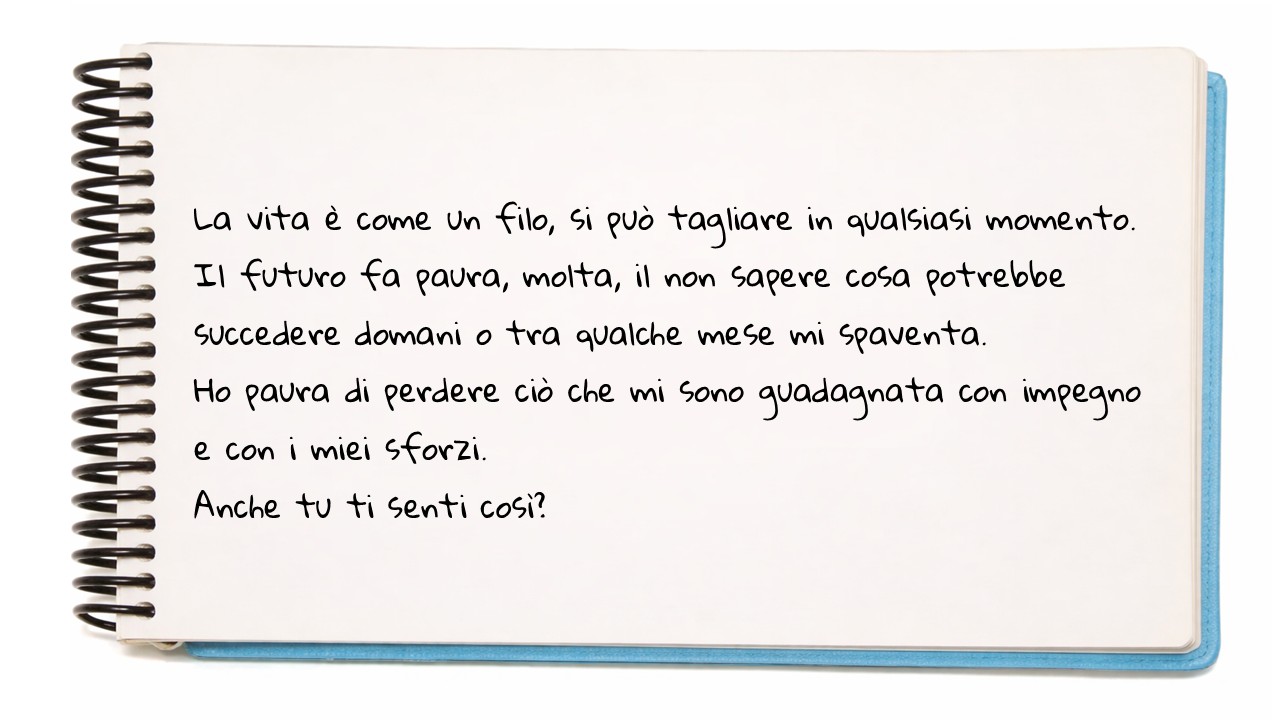 La vita è come un filo, si può tagliare in qualsiasi momento.
Il futuro fa paura, molta, il non sapere cosa potrebbe
succedere domani o tra qualche mese mi spaventa.
Ho paura di perdere ciò che mi sono guadagnata con impegno
e con i miei sforzi.
Anche tu ti senti così?